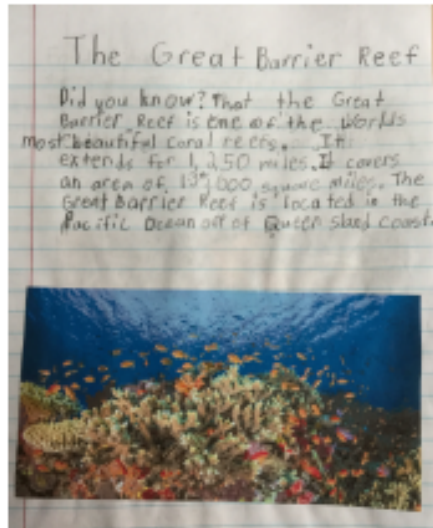 The Great Barrier Reef
Did you know? That the Great
Barrier Reef is one of the worlds
most beautiful coral reefs. It
extends for 1,250 miles. It covers
an area of 135,000 square miles. The
Great Barrier Reef is located in the
Pacific Ocean off of Queen sland coast.